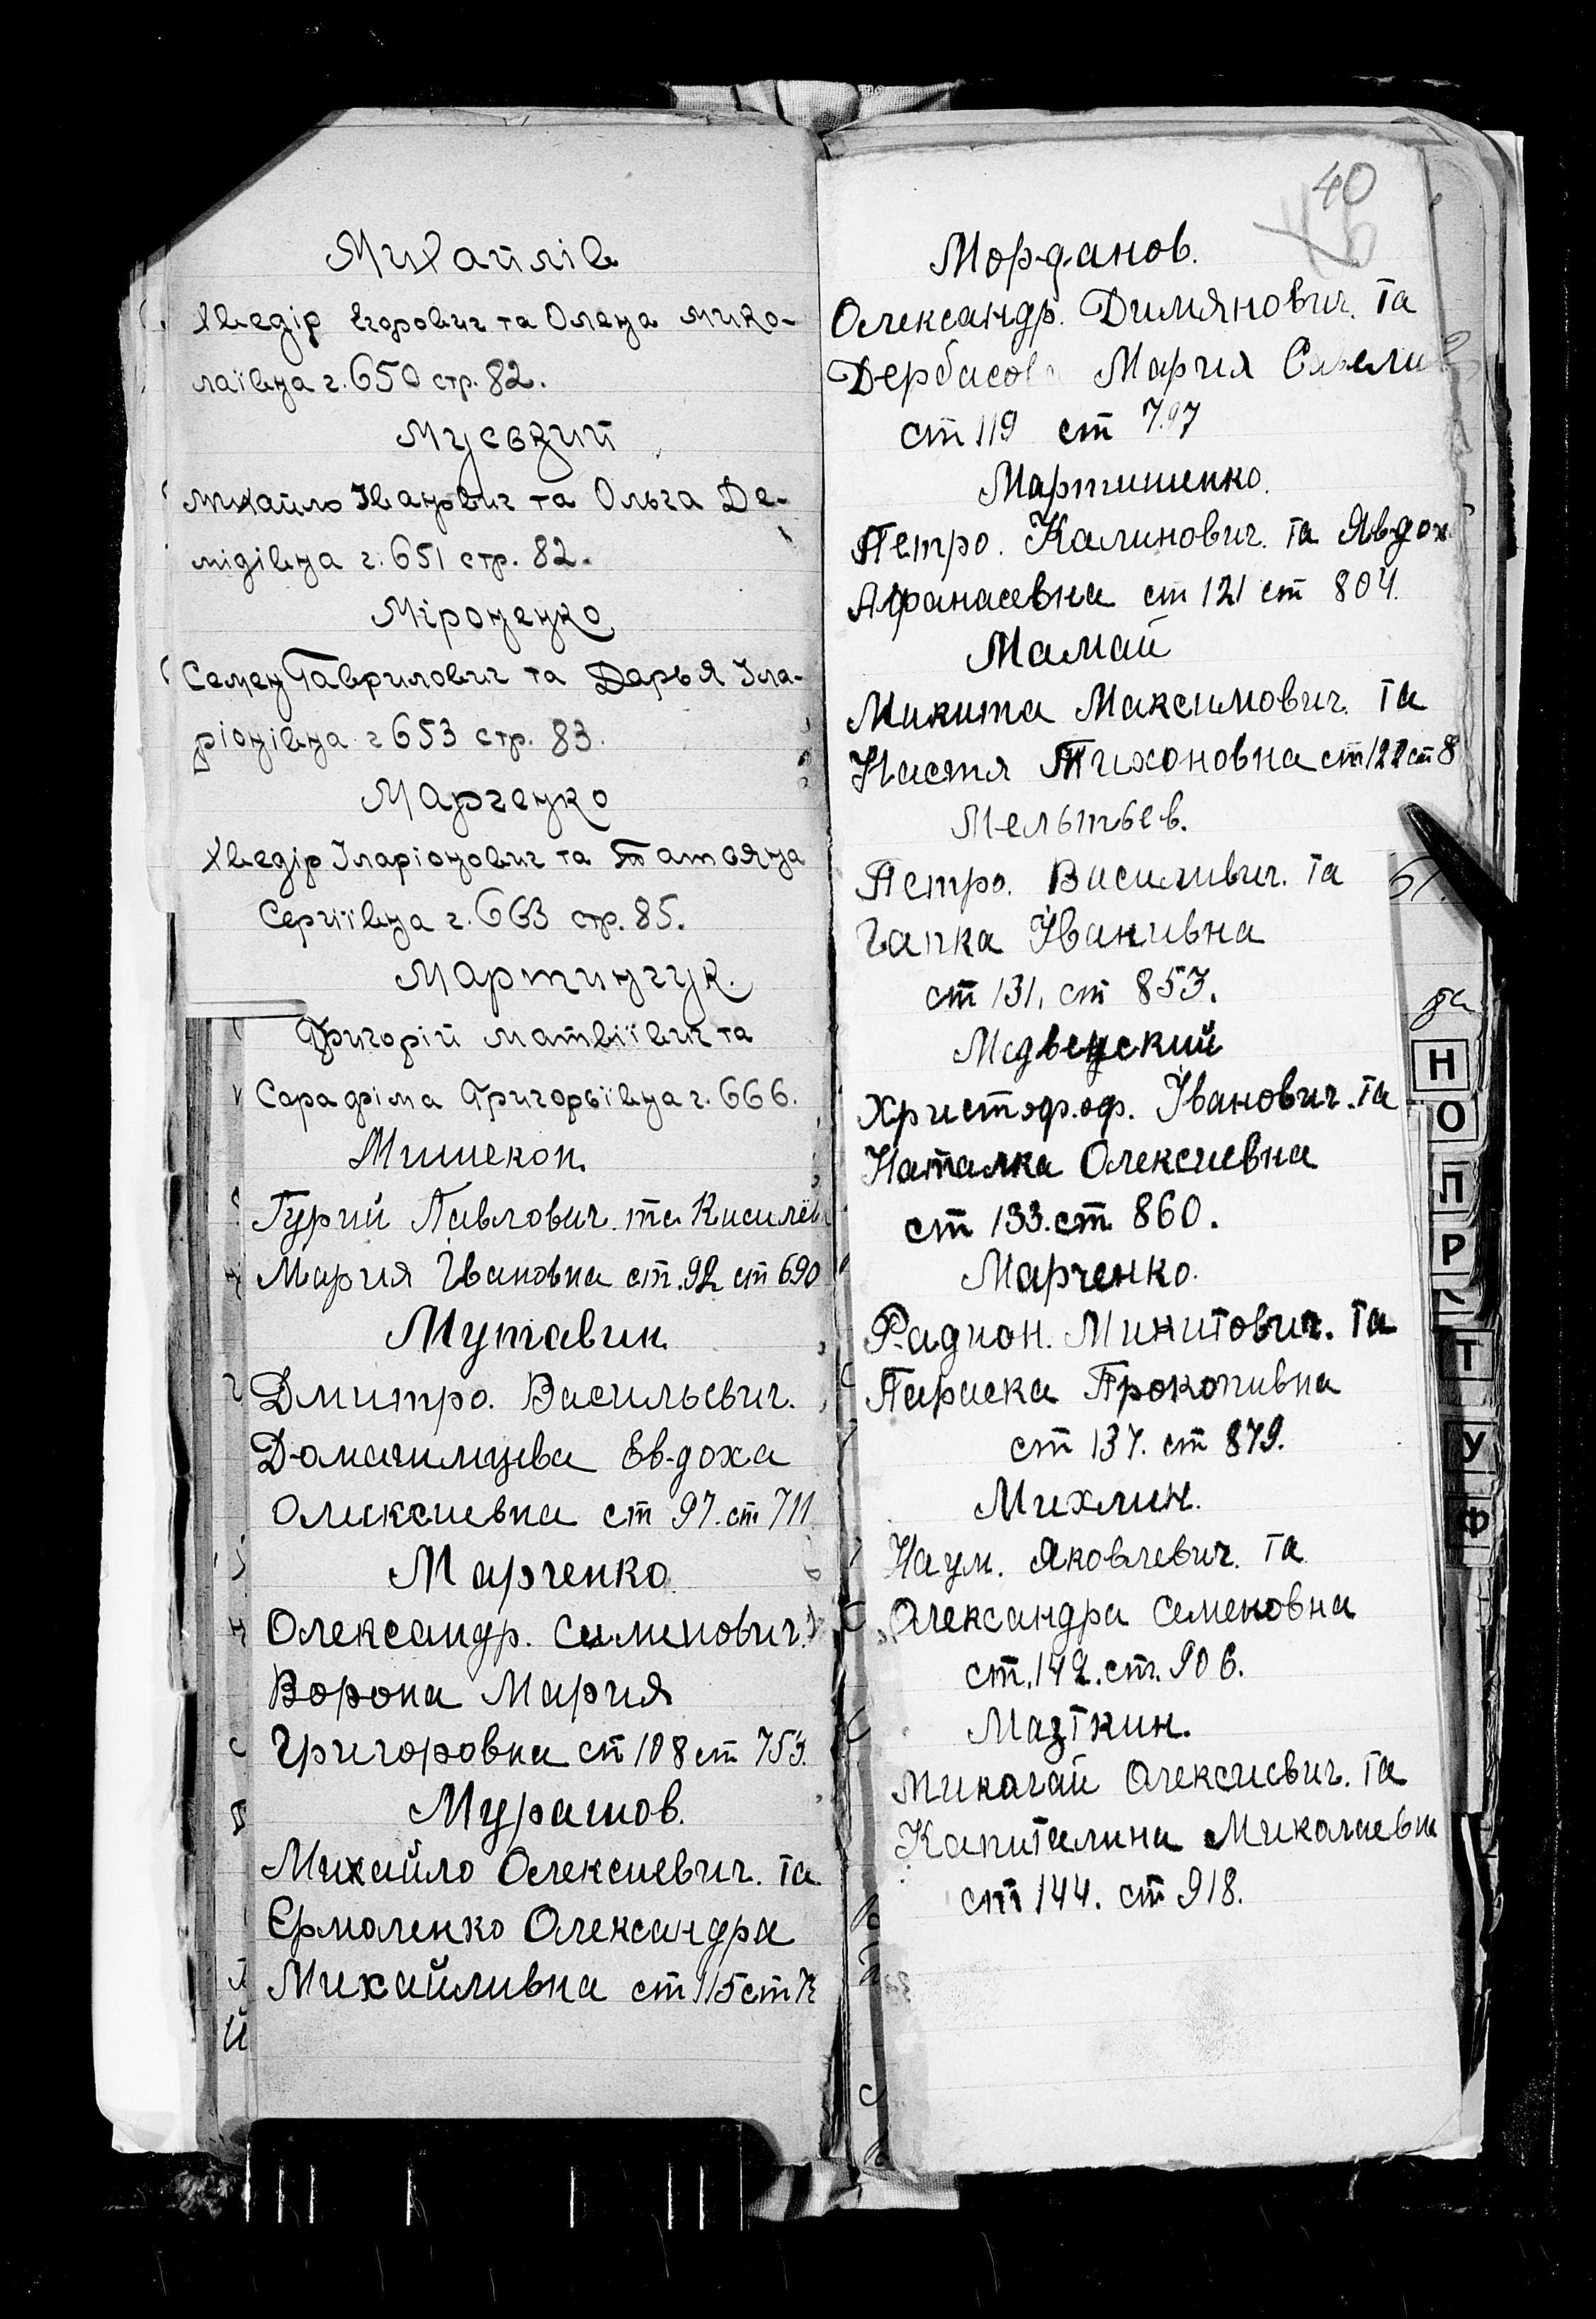 Михайлів
Хведір Егорович та Олена Мико-
лаївна ч. 650 стр. 82.
Мусвзий
Михайло Іванович та Ольга Де-
мідівна ч. 651 стр. 82.
Міроненко
Семен Гаврилович та Дарья Іла-
ріонівна ч 653 стр. 83.
Марченко
Хведір Іларіонович та Татояна
Сергиївна ч. 663 стр. 85.
Мартинчук.
Григорій Матвіївич та
Сарафіма Григорьївна ч. 666.
Мишекоп.
Гурий Павлович та Кисилёв
Мария Ивановна ст. 92 ст 690
Мутавин.
Дмитро. Васильевич.
Евдоха
Олексиевна ст 97. ст 711
Марченко
Олександр. Семенович.
Ворона Мария
Григоровна ст 108 ст 753.
Мурашов.
Михайло Олексиевич. та
Ермоленко Олександра
Михайливна ст 115 ст
40
Морданов.
Олександр. Димянович. та
Дербасов Мария
ст 119 ст 797
Мартишенко.
Петро. Калинович. та Явдох
Афанасевна ст 121 ст 804.
Мамай
Микита Максимович. та
Настя Тихоновна ст 122 ст 8
Мельтьев.
Петро. Василивич. та
Гапка Іванивна
ст 131, ст 853.
Медвецский
Христофоф. Іванович. та
Наталка Олексиевна
ст 133. ст 860.
Марченко.
Радион. Микитович. та
Параска Прокопивна
ст 137. ст 879.
Михлин.
Наум. Яковлевич. та
Олександра Семеновна
ст. 142. ст. 906.
Мазткин.
Миколай Олексиевич. та
Капиталина Миколаевна
ст 144. ст 918.
Н
О
П
Р
Т
У
Ф